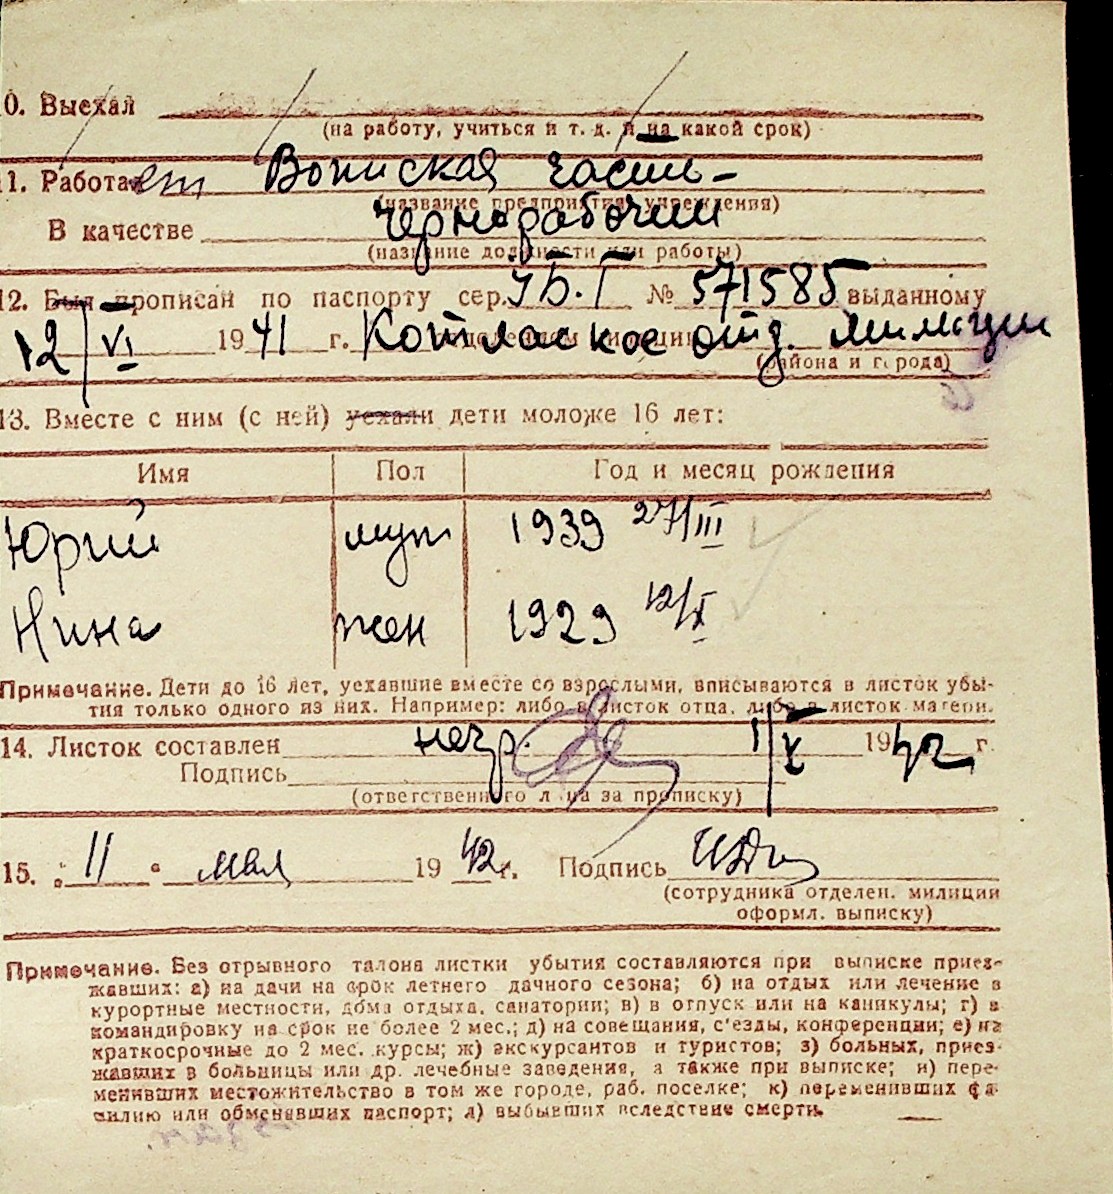 0. Выехал
(на работу, учиться и т. д. и на какой срок)
11. Работает Воинская часть-
(название предприятия, учреждения)
В качестве чернорабочий
(название должности или работы)
12. Был прописан по паспорту сер. № 571585 выданному
12/VI 1941 г. Котласское отд. милиции
(района и города)
13. Вместе с ним (с ней) уехали дети моложе 16 лет:
Имя Пол Год и месяц рождения
Юрий муж 1939 27/III
Нина жен 1929 12/X
Примечание. Дети до 16 лет, уехавшие вместе со взрослыми, вписываются в листок убы-
тия только одного из них. Например: либо в листок отца, либо в листок матери.
14. Листок составлен 1942 г.
Подпись
(ответственного лица за прописку)
15. „ 11 “ мая 1942 г. Подпись
(сотрудника отделен. милиции
оформл. выписку)
Примечание. Без отрывного талона листки убытия составляются при выписке приез-
жавших: а) на дачи на срок летнего дачного сезона; б) на отдых или лечение в
курортные местности, дома отдыха, санатории; в) в отпуск или на каникулы; г) в
командировку на срок не более 2 мес.; д) на совещания, с'езды, конференции; е) на
краткосрочные до 2 мес. курсы; ж) экскурсантов и туристов; з) больных, приез-
жавших в больницы или др. лечебные заведения, а также при выписке; и) пере-
менивших местожительство в том же городе, раб. поселке; к) переменивших фа-
милию или обменявших паспорт; л) выбывших вследствие смерти.